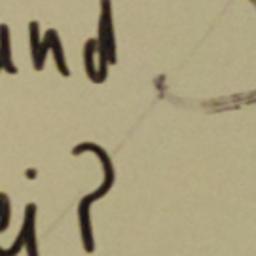 und
ei?